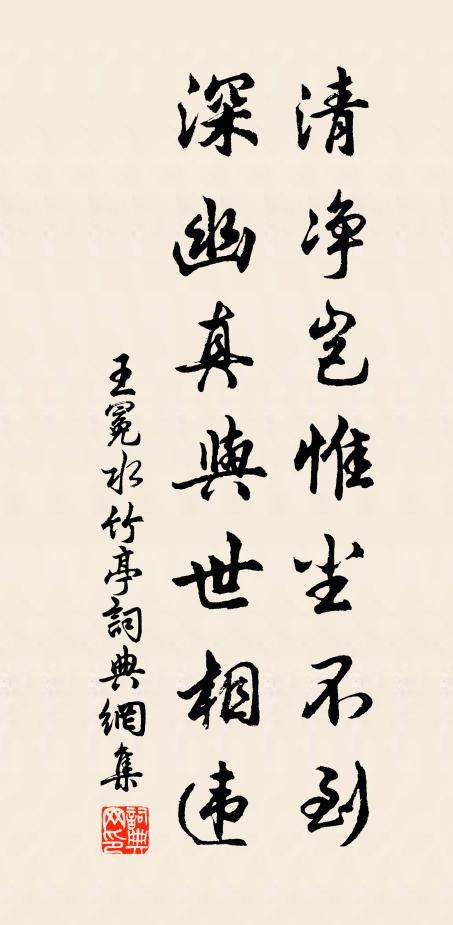 清净岂惟尘不到
深幽真與世相违
王冕水竹亭詞典網集
詞典
网印